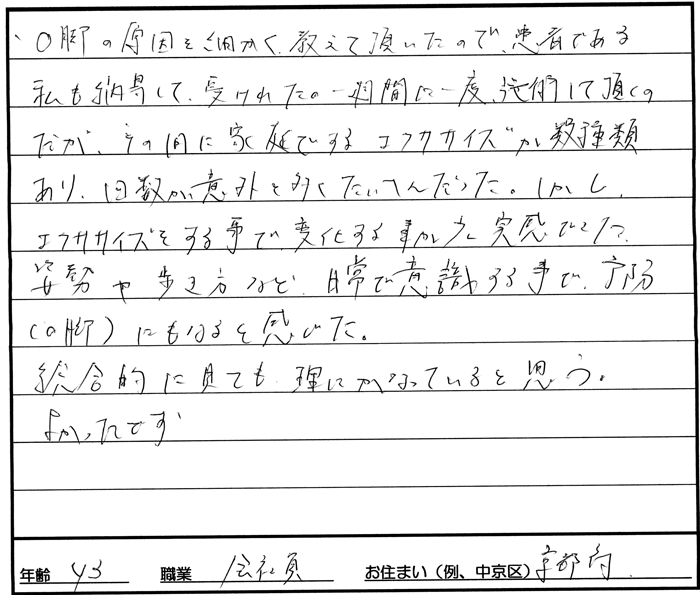 、O脚の原因を細かく、教えて頂いたので、患者である
私も納得して、受けれたの一週間に一度、施術して頂くの
だが、その間に家庭でするエクササイズが数種類
あり、回数が意外と多くたいへんだった。しかし、
エクササイズをする事で、変化する事が少し実感できた。
姿勢や歩き方など、日常で意識する事で、予防
(O脚)にもなると感じた。
総合的に見ても、理にかなっていると思う。
よかったです
年齢 43 職業 会社員 お住まい(例、中京区) 京都府